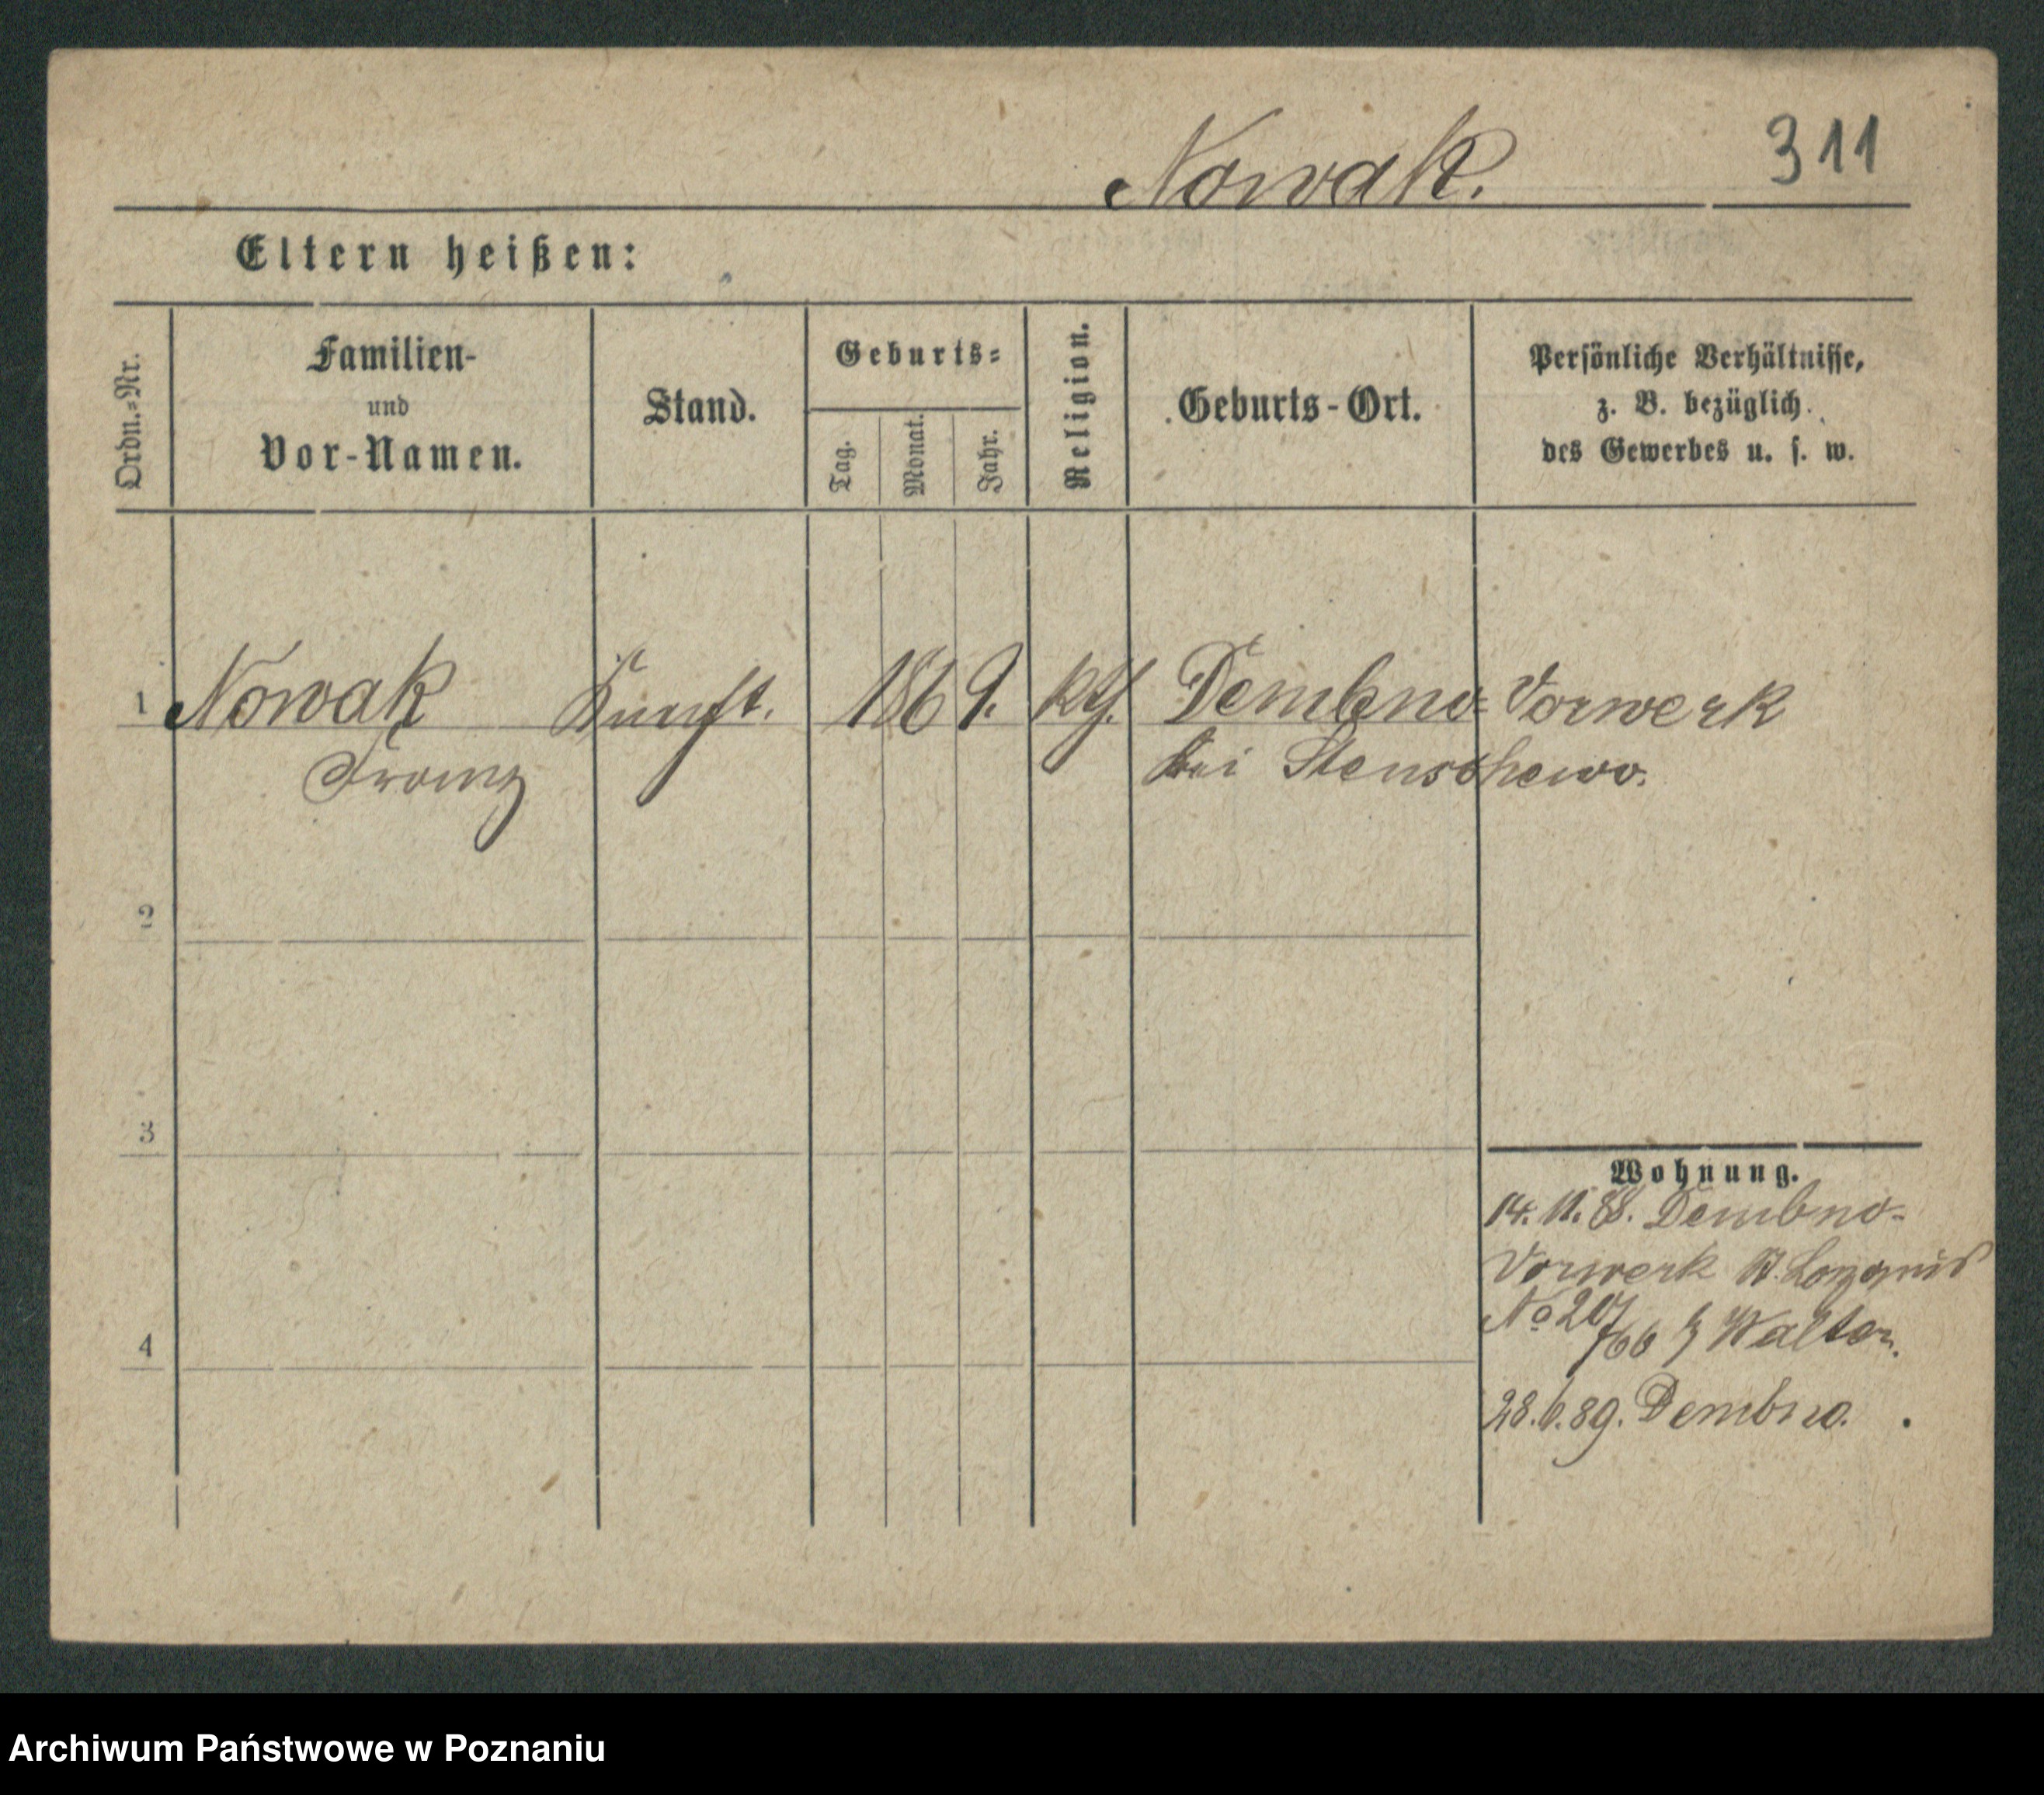 Nowak. 311
Eltern heißen:
Ordn.-Nr.
Familien-
und
Vor-Namen.
Stand.
Geburts-
Tag.
Monat.
Jahr.
Religion.
Geburts-Ort.
Persönliche Verhältnisse,
z. B. bezüglich
des Gewerbes u. s. w.
1 Nowak 1869. kth. Dembno-Vorwerk
Franz bei Stenschewo.
2
3
Wohnung.
14. 11. 88. Dembno-
Vorwerk
No 207
4
766 Walter.
28. 6. 89. Dembno.
Archiwum Państwowe w Poznaniu